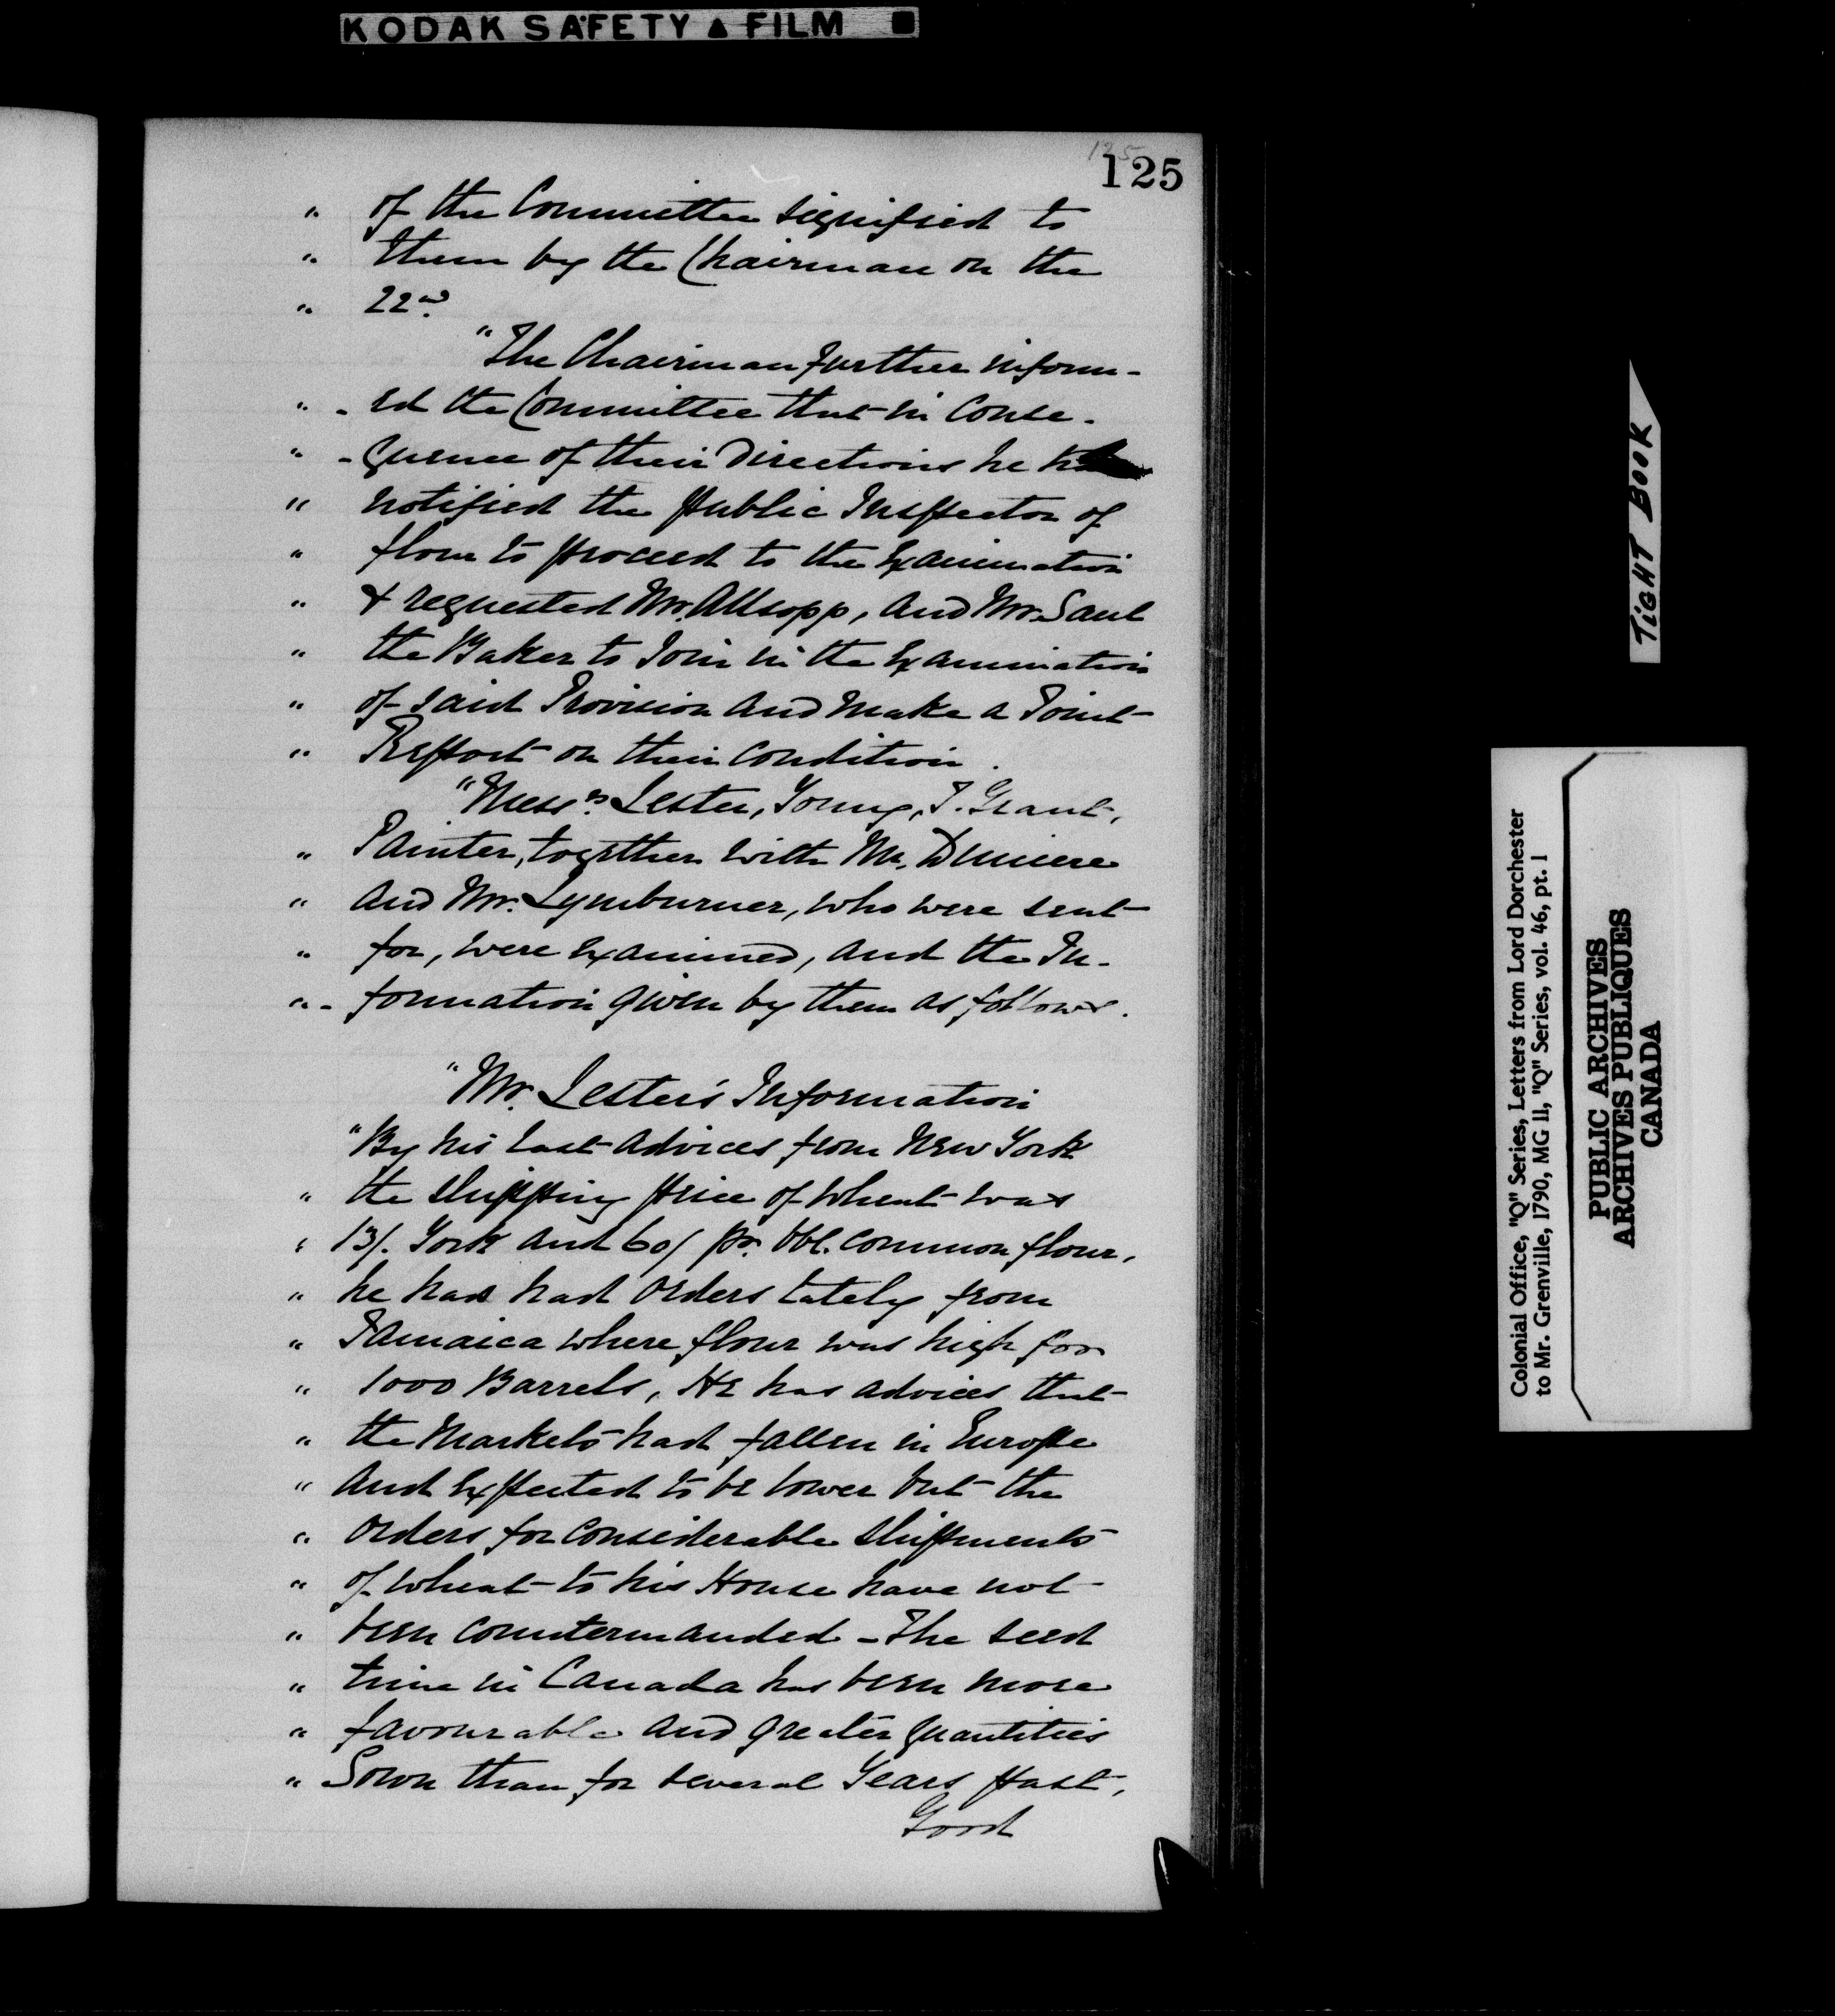 KODAK SAFETY ▲ FILM
125
125
" of the Committee signified to
" them by the Chairman on the
" 22nd
"The Chairman further inform-
" -ed the Committee that in Conse-
" -quence of their Directions he had
" notified the Public Inspector of
" flour to proceed to the Examination
" & requested Mr. Allsopp, and Mr. Saul
" the Baker to Join in the Examination
" of said Provision and make a Joint
" Report on their Condition.
"Messrs Lester, Young, J. Grant,
" Painter, together with Mr. Duniere
" and Mr. Lymburner, who were sent
" for, were Examined, and the In-
" -formation given by them as follows.
"Mr. Lester's Information
"By his last advices from New York
" the shipping price of wheat was
" 13/. York and 60/ pr. bbl. common flour,
" he has had orders lately from
" Jamaica where flour was high for
" 1000 Barrels, He has advices that
" the Markets had fallen in Europe
" and Expected to be lower but the
" orders for considerable shipments
" of wheat to his House have not
" been countermanded - The seed
" time in Canada has been more
" favourable and greater quantities
" Sown than for several Years past,
Good
TIGHT BOOK
Colonial Office, "Q" Series, Letters from Lord Dorchester
to Mr. Grenville, 1790, MG 11, "Q" Series, vol. 46, pt. 1
PUBLIC ARCHIVES
ARCHIVES PUBLIQUES
CANADA